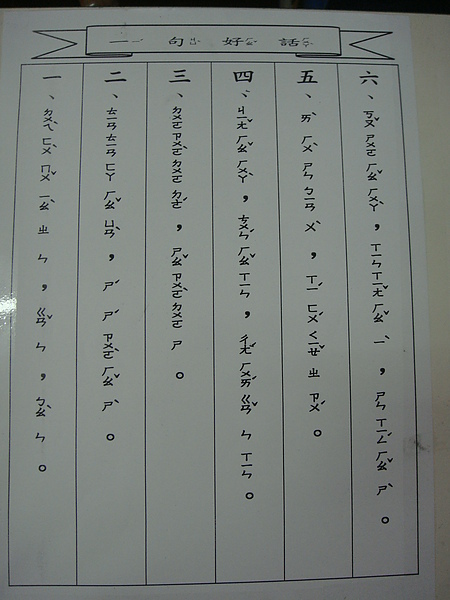 一ㄧ句ㄐㄩˋ好ㄏㄠˇ話ㄏㄨㄚˋ
一、ㄉㄨㄟˋ ㄈㄨˋ ㄇㄨˇ ㄧㄠˋ ㄓ ㄣ，ㄍㄢˇ ㄣ，ㄅㄠˋ ㄣ。
二、ㄊㄧㄢ ㄊㄧㄢ ㄈㄚ ㄏㄠˇ ㄩㄢˋ，ㄕˊ ㄕˊ ㄗㄨㄛˋ ㄏㄠˇ ㄕˋ。
三、ㄉㄨㄛ ㄗㄨㄛˋ ㄉㄨㄛ ㄉㄜˊ，ㄕㄠˇ ㄗㄨㄛˋ ㄉㄨㄛ ㄕ。
四、ㄐㄧㄤˇ ㄏㄠˇ ㄏㄨㄚˋ，ㄊㄨㄣˊ ㄏㄠˇ ㄒㄧㄣ，ㄔㄤˊ ㄏㄨㄞˊ ㄍㄢˇ ㄣ ㄒㄧㄣ。
五、ㄞˋ ㄏㄨˋ ㄕㄣ ㄅㄧㄢ ㄨˋ，ㄒㄧˊ ㄈㄨˊ ㄑㄧㄝˇ ㄓ ㄗㄨˊ。
六、ㄎㄡˇ ㄕㄨㄛ ㄏㄠˇ ㄏㄨㄚˋ，ㄒㄧㄣ ㄒㄧㄤˇ ㄏㄠˇ ㄧˋ，ㄕㄣ ㄒㄧㄥˊ ㄏㄠˇ ㄕˋ。